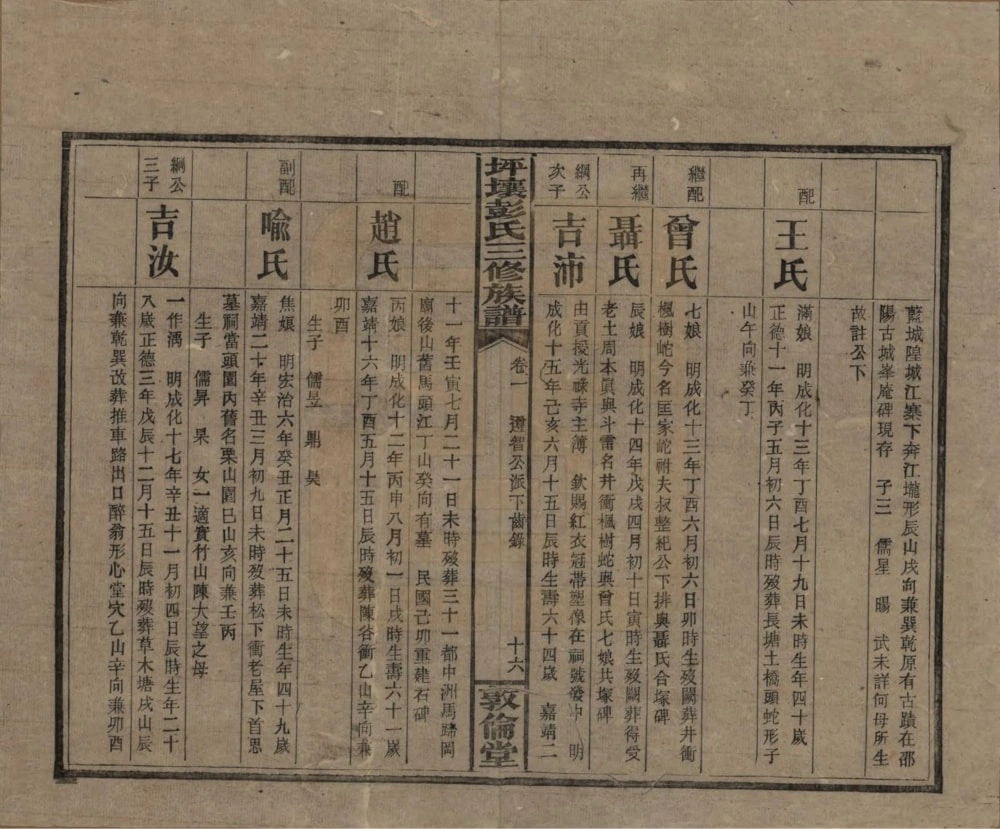 藯城隍城江寨下奔江壠形辰山戌向兼巽乾原有古蹟在邵
陽古城峯庵碑現存　子三　儒星　賜　武未詳何母所生
故註公下
配
王氏
滿娘　明成化十三年丁酉七月十九日未時生年四十歲
正德十一年丙子五月初六日辰時歿葬長塘土橋頭蛇形子
山午向兼癸丁
繼配
曾氏
七娘　明成化十三年丁酉六月初六日卯時生歿闕葬井衝
楓樹蛇今名匡家蛇祔夫叔整紀公下排與聶氏合塚碑
再繼
聶氏
辰娘　明成化十四年戊戌四月初十日寅時生歿闕葬得受
老土周本眞與斗雷名井衝楓樹蛇與曾氏七娘共塚碑
綱公
次子
吉沛
由貢授光祿寺主簿　欽賜紅衣冠帶塑像在祠號發中　明
成化十五年己亥六月十五日辰時生壽六十四歲　嘉靖二
坪壤彭氏三修族譜
卷一
道智公派下齒錄
十六
敦倫堂
十一年壬寅七月二十一日未時歿葬三十一都中洲馬蹄岡
廟後山舊馬頭江丁山癸向有墓　民國己卯重建石碑
配
趙氏
丙娘　明成化十二年丙申八月初一日戌時生壽六十一歲
嘉靖十六年丁酉五月十五日辰時歿葬陳谷衝乙山辛向兼
卯酉
生子　儒昱　鼎　昊
副配
喩氏
焦娘　明宏治六年癸丑正月二十五日未時生年四十九歲
嘉靖二十年辛丑三月初九日未時歿葬松下衝老屋下首恩
墓祠當頭園內舊名栗山園巳山亥向兼壬丙
生子　儒昇　杲　女一適實竹山陳大望之母
綱公
三子
吉汝
一作澫　明成化十七年辛丑十一月初四日辰時生年二十
八歲正德三年戊辰十二月十五日辰時歿葬草木塘戌山辰
向兼乾巽改葬推車路出口醉翁形心堂穴乙山辛向兼卯酉